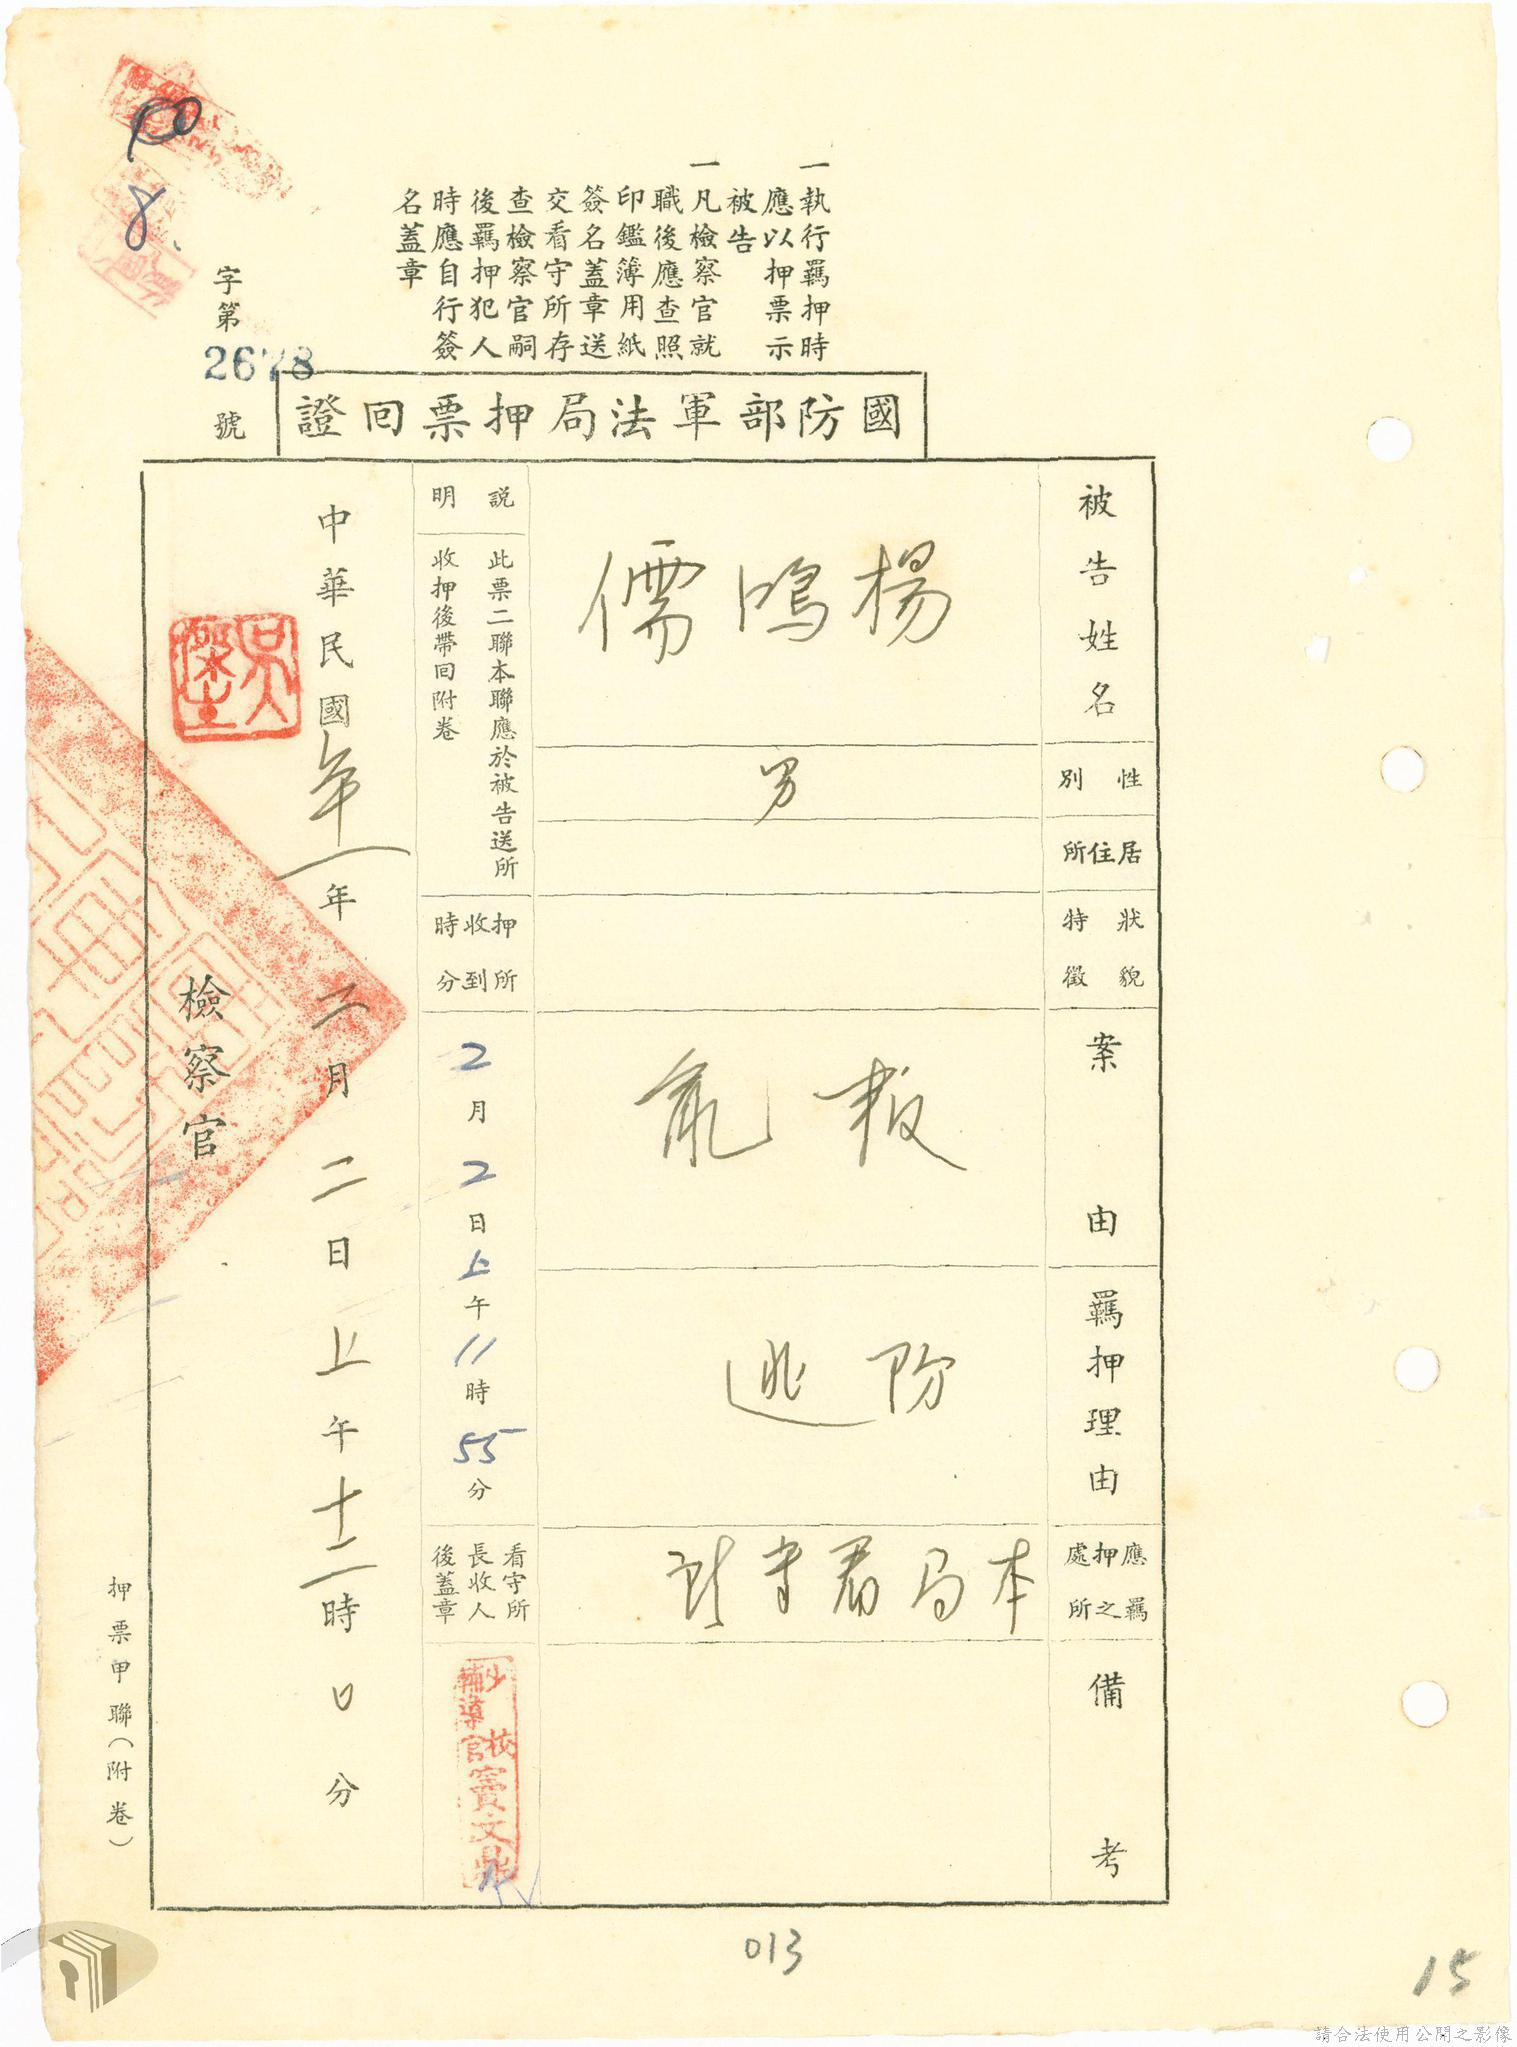 一執行羈押時
應以押票示
被告
一凡檢察官就
職後應查照
印鑑簿用紙
簽名蓋章送
交看守所存
查檢察官嗣
後羈押犯人
時應自行簽
名蓋章
字第
2678
號
國防部軍法局押票回證
被告姓名
楊鴻儒
性別
男
居住所
狀貌
特徵
案由
叛亂
羈押理由
防逃
應羈
押之
處所
本局看守所
備考
說明
此票二聯本聯應於被告送所
收押後帶回附卷
押所
收到
時分
2月2日上午11時55分
看守所
長收人
後蓋章
少校
輔導官
竇文鼎
代
中華民國
年二月二日上午十二時0分
檢察官
押票甲聯(附卷)
013
15
請合法使用公開之影像